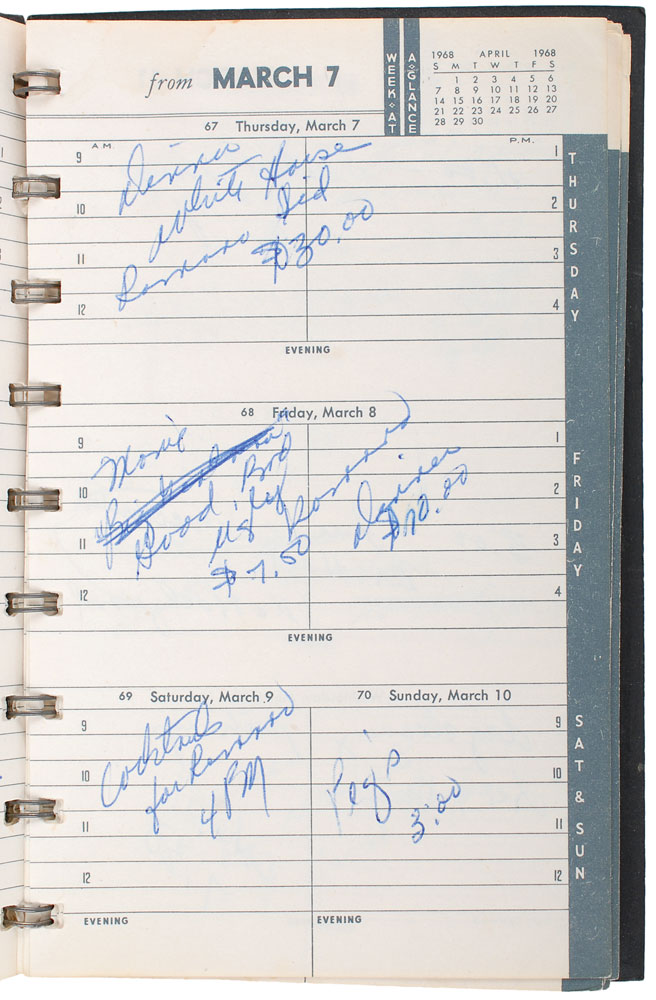 from MARCH 7
WEEK AT
A GLANCE
1968 APRIL 1968
S M T W T F S
1 2 3 4 5 6
7 8 9 10 11 12 13
14 15 16 17 18 19 20
21 22 23 24 25 26 27
28 29 30
67 Thursday, March 7
A.M. P.M.
9 1
10 2
11 3
12 4
Dinner
White House
Sid
$30.00
EVENING
THURSDAY
68 Friday, March 8
9 1
10 2
11 3
12 4
Movie
Good, Bad
Ugly
$7.50
Dinner
$10.00
EVENING
FRIDAY
69 Saturday, March 9
9
10
11
12
Cocktails
for
4 PM
EVENING
70 Sunday, March 10
9
10
11
12
Peg's
3:00
EVENING
SAT & SUN